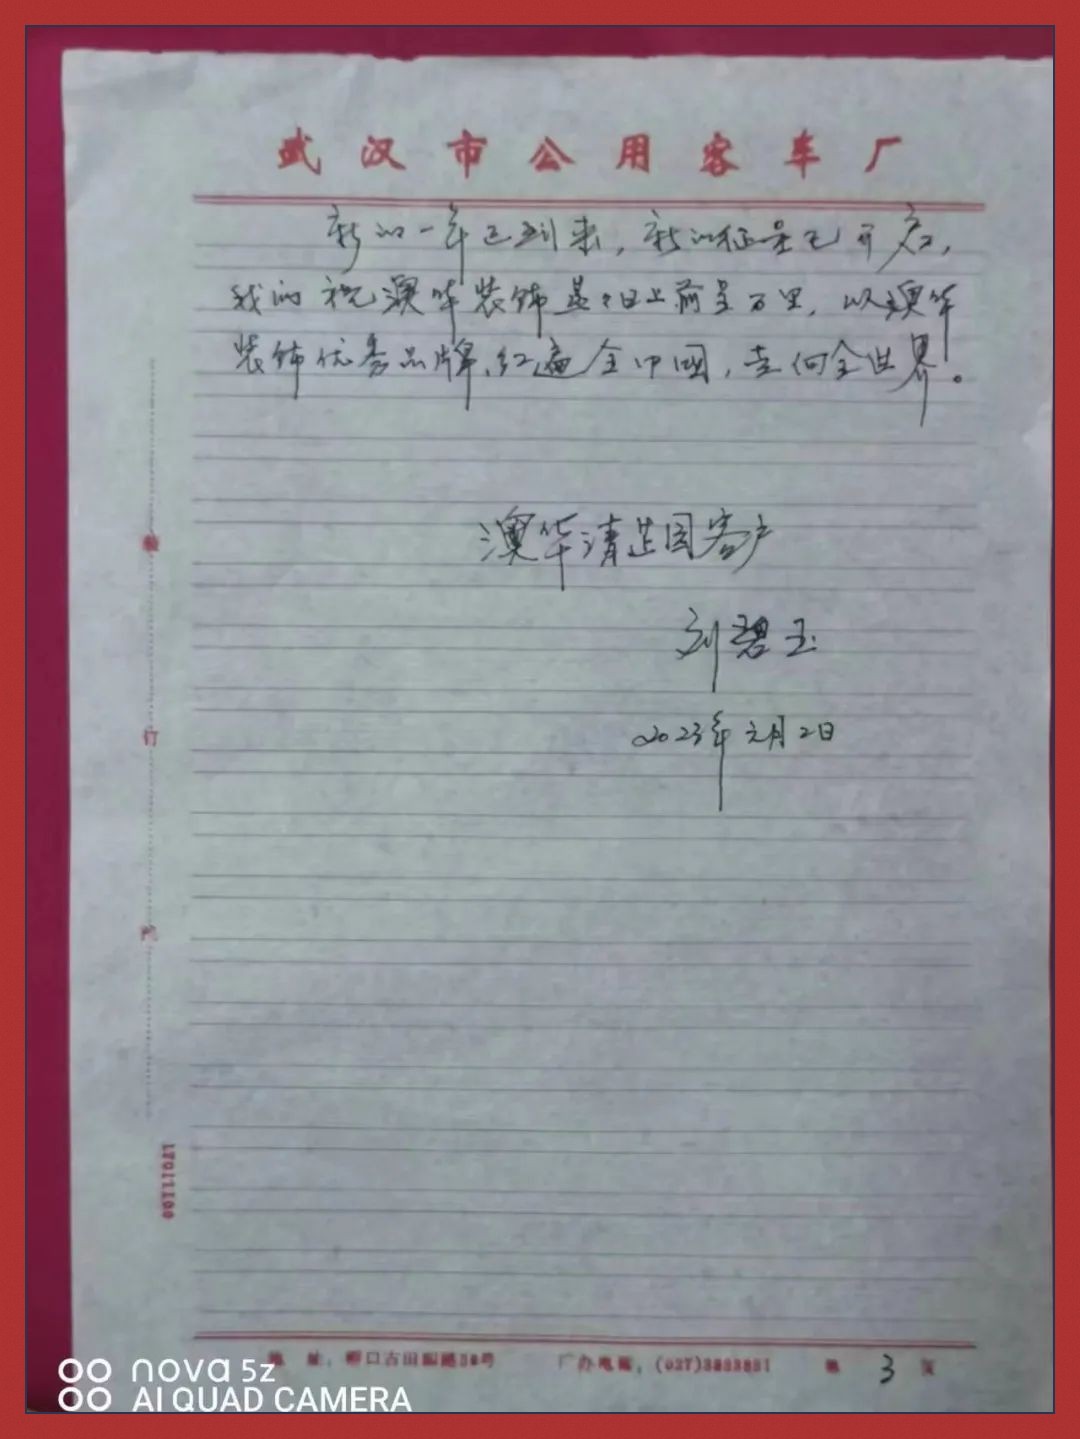 武汉市公用客车厂
新的一年已到来，新的征程已开启，
我的祝澳华装饰蒸々日上前呈万里，以澳华
装饰优秀品牌，红遍全中国，走向全世界。
澳华清芷园客户
刘碧玉
2023年元月2日
装
订
线
17011100
地 址：桥口古田四路 号 厂办电话：(027) 第 3 页
nova 5z
AI QUAD CAMERA